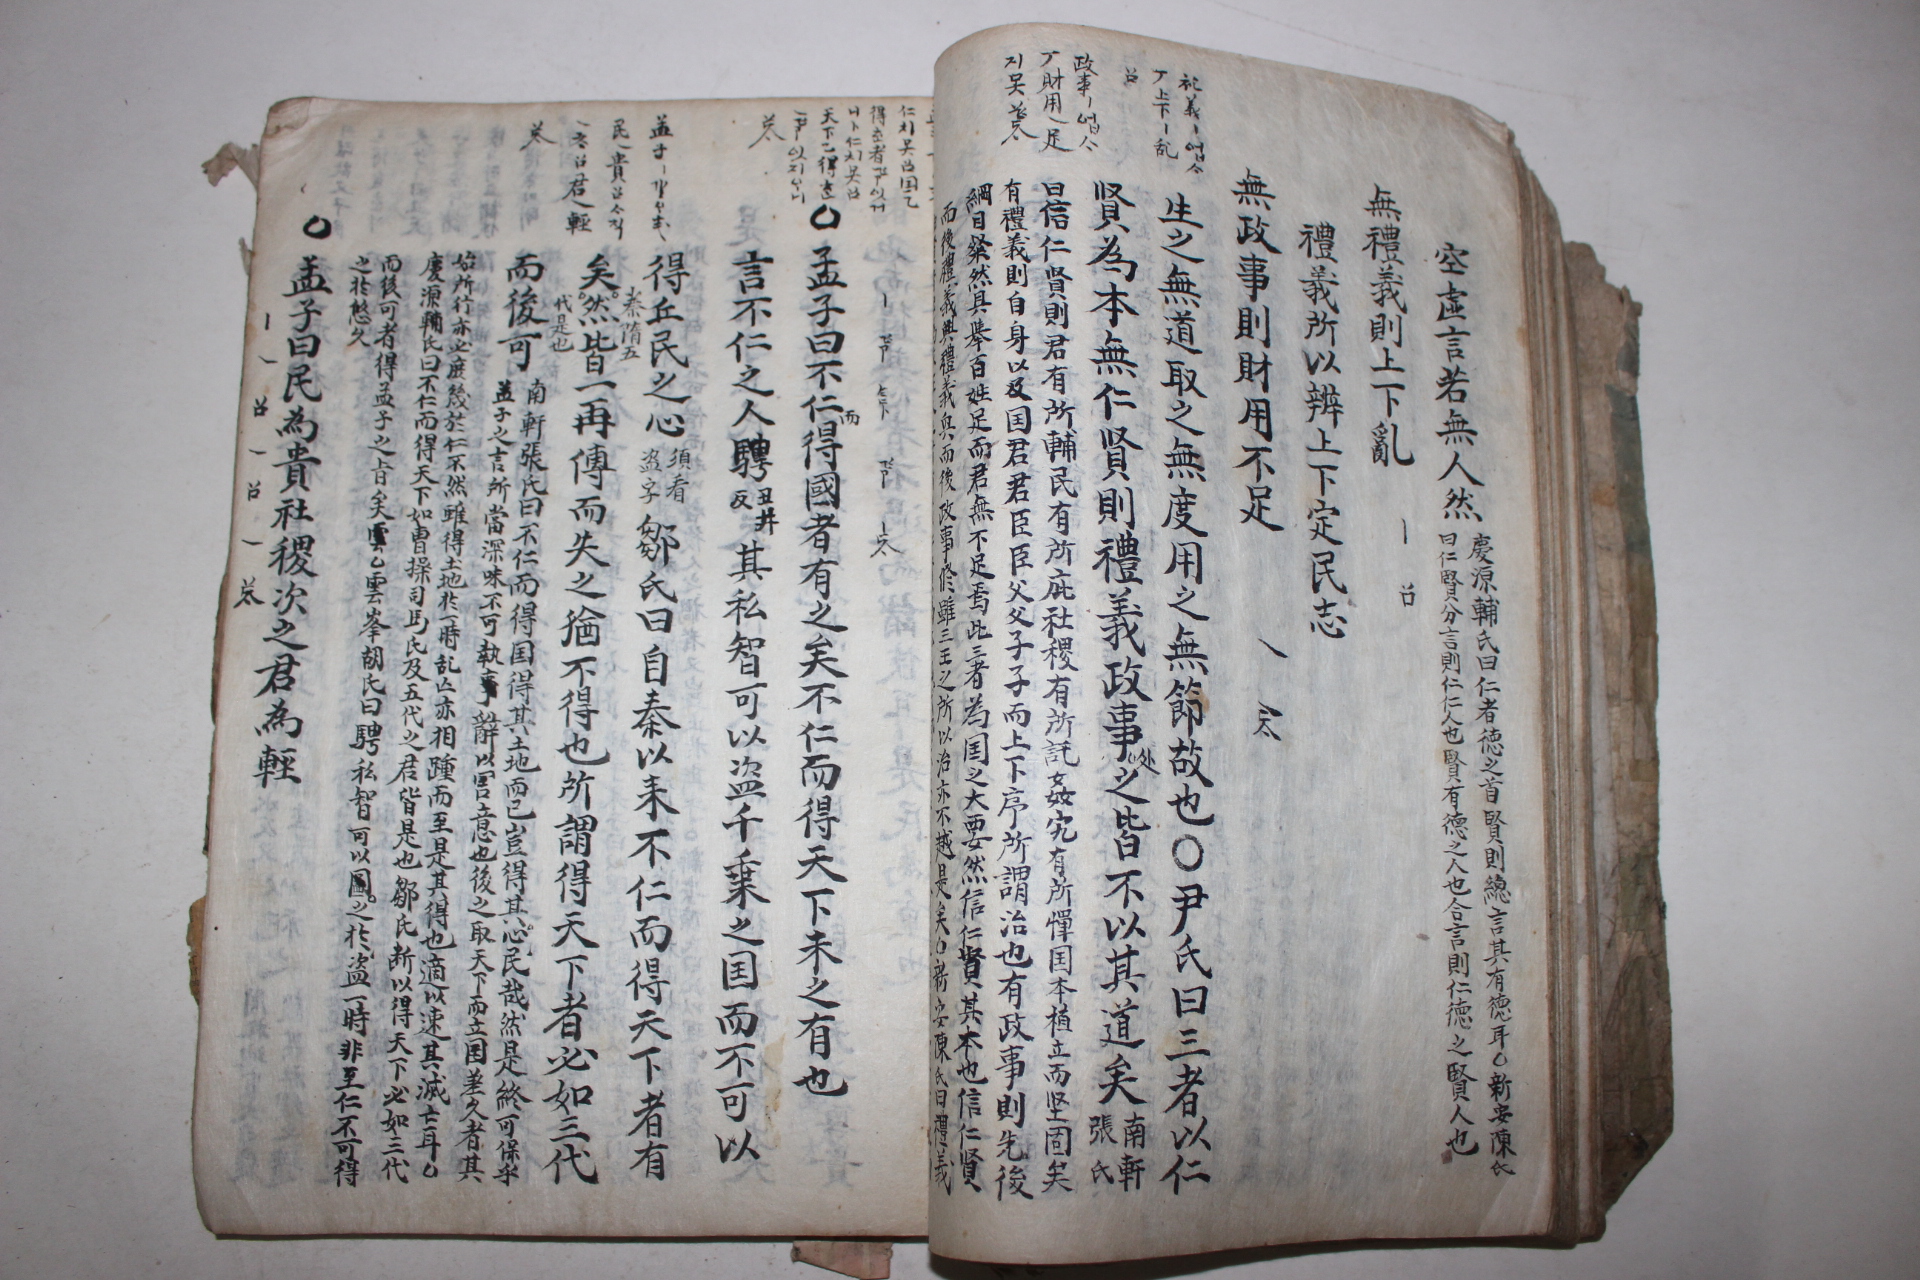 空虛言若無人然
慶源輔氏曰仁者德之首賢則總言其有德耳○新安陳氏
曰仁賢分言則仁仁人也賢有德之人也合言則仁德之賢人也
無禮義則上下亂
禮義所以辨上下定民志
無政事則財用不足
生之無道取之無度用之無節故也○尹氏曰三者以仁
賢為本無仁賢則禮義政事處之皆不以其道矣
南軒
張氏
曰信仁賢則君有所輔民有所庇社稷有所託姦宄有所憚国本植立而堅固矣
有禮義則自身以及国君君臣臣父父子子而上下序所謂治也有政事則先後
綱目粲然具擧百姓足而君無不足焉此三者為国之大要然信仁賢其本也信仁賢
而後禮義興禮義興而後政事修雖三王之所以治亦不越是矣○新安陳氏曰禮義
孟子曰不仁而得國者有之矣不仁而得天下未之有也
言不仁之人騁
丑井
反
其私智可以盗千乗之国而不可以
得丘民之心
須看
盗字
鄒氏曰自秦以来不仁而得天下者有
矣
秦隋五
代是也
然皆一再傳而失之猶不得也所謂得天下者必如三代
而後可
南軒張氏曰不仁而得国得其土地而已豈得其心民哉然是終可保乎
孟子之言所當深味不可執事辭以害意也後之取天下而立国差久者其
始所行亦必庶幾於仁不然雖得土地於一時乱亾亦相踵而至是其得也適以速其滅亡耳○
慶源輔氏曰不仁而得天下如曹操司馬氏及五代之君皆是也鄒氏断以得天下必如三代
而後可者得孟子之旨矣○雲峯胡氏曰騁私智可以圖之於盗一時非至仁不可得
之於悠久
孟子曰民為貴社稷次之君為輕